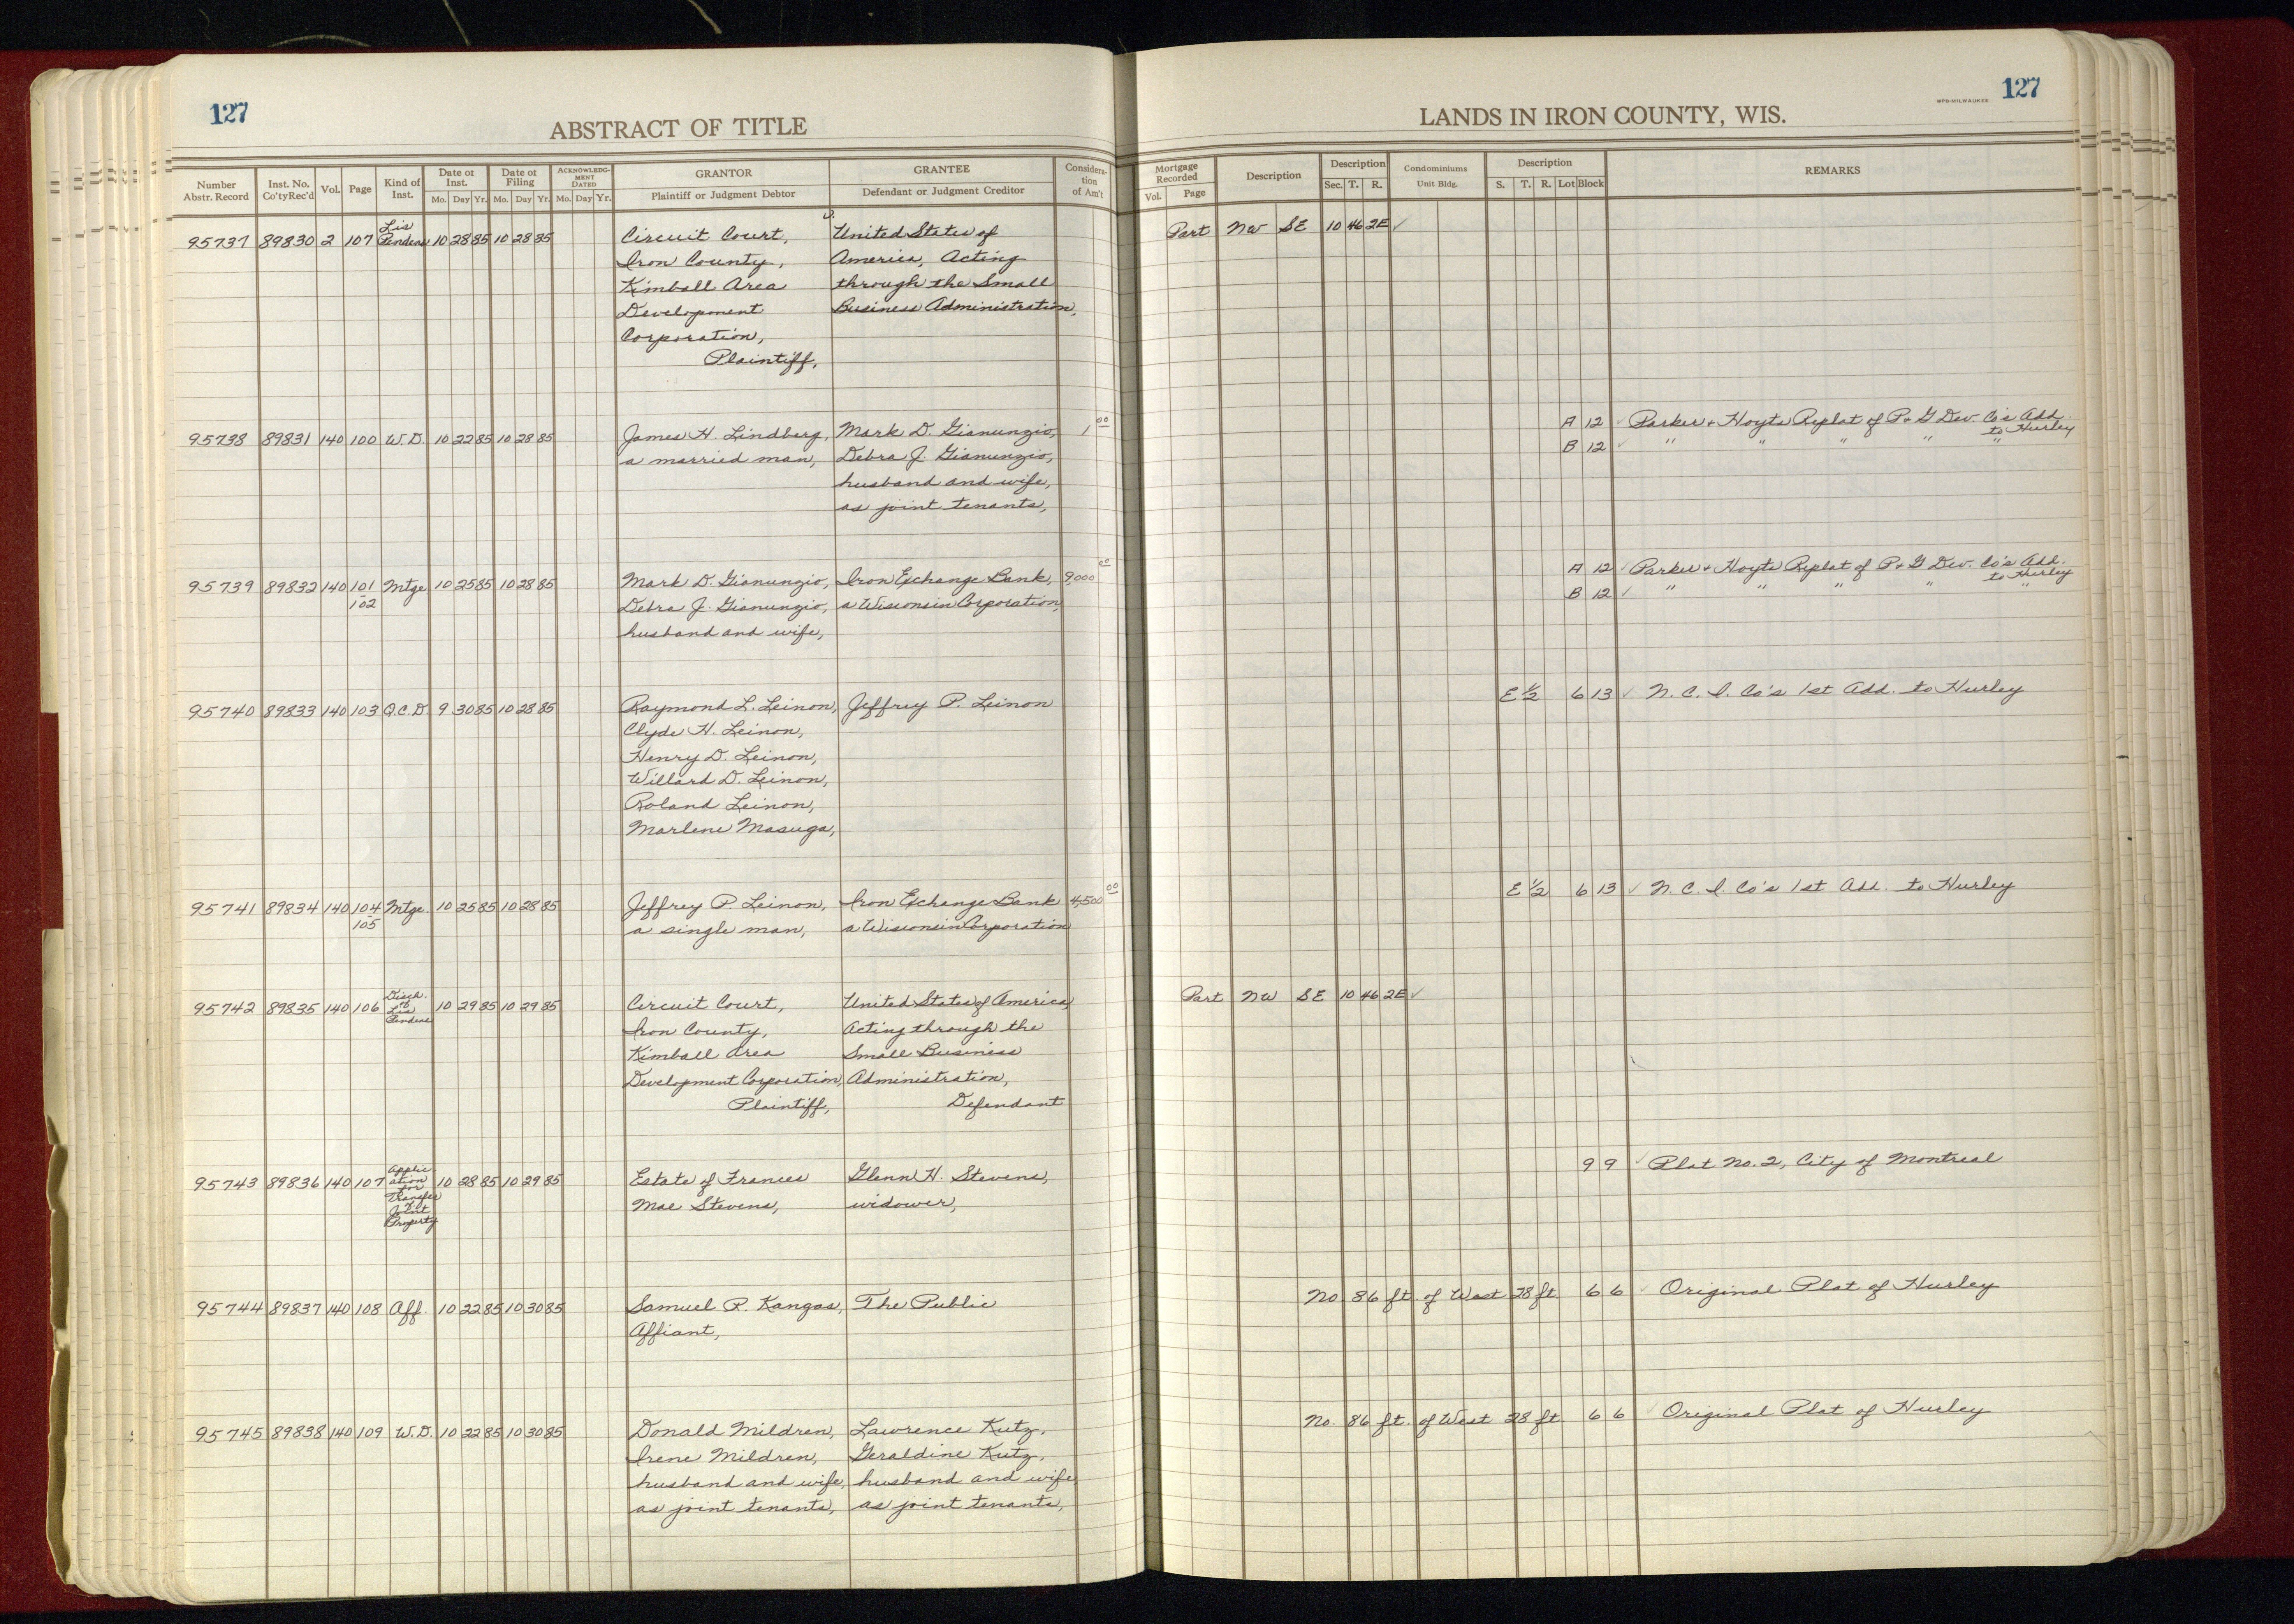 127
ABSTRACT OF TITLE
Number Abstr. Record
Inst. No. Co'tyRec'd
Vol.
Page
Kind of Inst.
Date of Inst.
Mo. Day Yr.
Date of Filing
Mo. Day Yr.
ACKNOWLEDGMENT DATED
Mo. Day Yr.
GRANTOR
Plaintiff or Judgment Debtor
GRANTEE
Defendant or Judgment Creditor
Considera-
tion
of Am't
95737 89830 2 107 Lis Pendens 10 28 85 10 28 85
Circuit Court,
Iron County,
Kimball Area
Development
Corporation,
Plaintiff,
United States of
America, Acting
through the Small
Business Administration,
95738 89831 140 100 W.D. 10 22 85 10 28 85
James H. Lindberg,
a married man,
Mark D. Gianunzio,
Debra J. Gianunzio,
husband and wife,
as joint tenants,
1 00
95739 89832 140 101-102 Mtge 10 25 85 10 28 85
Mark D. Gianunzio,
Debra J. Gianunzio,
husband and wife,
Iron Exchange Bank,
a Wisconsin Corporation,
9,000 00
95740 89833 140 103 Q.C.D. 9 30 85 10 28 85
Raymond L. Leinon,
Clyde H. Leinon,
Henry D. Leinon,
Willard D. Leinon,
Roland Leinon,
Marlene Masuga,
Jeffrey P. Leinon
95741 89834 140 104-105 Mtge. 10 25 85 10 28 85
Jeffrey P. Leinon,
a single man,
Iron Exchange Bank
a Wisconsin Corporation
4,500 00
95742 89835 140 106 Disch. of Lis Pendens 10 29 85 10 29 85
Circuit Court,
Iron County,
Kimball Area
Development Corporation,
Plaintiff,
United States of America,
Acting through the
Small Business
Administration,
Defendant
95743 89836 140 107 Application for Transfer of Joint Property 10 28 85 10 29 85
Estate of Frances
Mae Stevens,
Glenn H. Stevens,
widower,
95744 89837 140 108 Aff. 10 22 85 10 30 85
Samuel R. Kangas,
Affiant,
The Public
95745 89838 140 109 W.D. 10 22 85 10 30 85
Donald Mildren,
Irene Mildren,
husband and wife,
as joint tenants,
Lawrence Kutz,
Geraldine Kutz,
husband and wife
as joint tenants,
127
WPB-MILWAUKEE
LANDS IN IRON COUNTY, WIS.
Mortgage Recorded
Vol. Page
Description
Description
Sec. T. R.
Condominiums
Unit Bldg.
Description
S. T. R. Lot Block
REMARKS
Part NW SE 10 46 2E ✓
A 12 ✓ Parker + Hoyts Replat of P + G Dev. Co's Add. to Hurley
B 12 ✓ " " " " "
A 12 ✓ Parker + Hoyts Replat of P + G Dev. Co's Add. to Hurley
B 12 ✓ " " " " "
E ½ 6 13 ✓ N. C. I. Co's 1st Add. to Hurley
E ½ 6 13 ✓ N. C. I. Co's 1st Add. to Hurley
Part NW SE 10 46 2E ✓
9 9 ✓ Plat No. 2, City of Montreal
No 86 ft. of West 28 ft. 6 6 ✓ Original Plat of Hurley
No. 86 ft. of West 28 ft. 6 6 ✓ Original Plat of Hurley